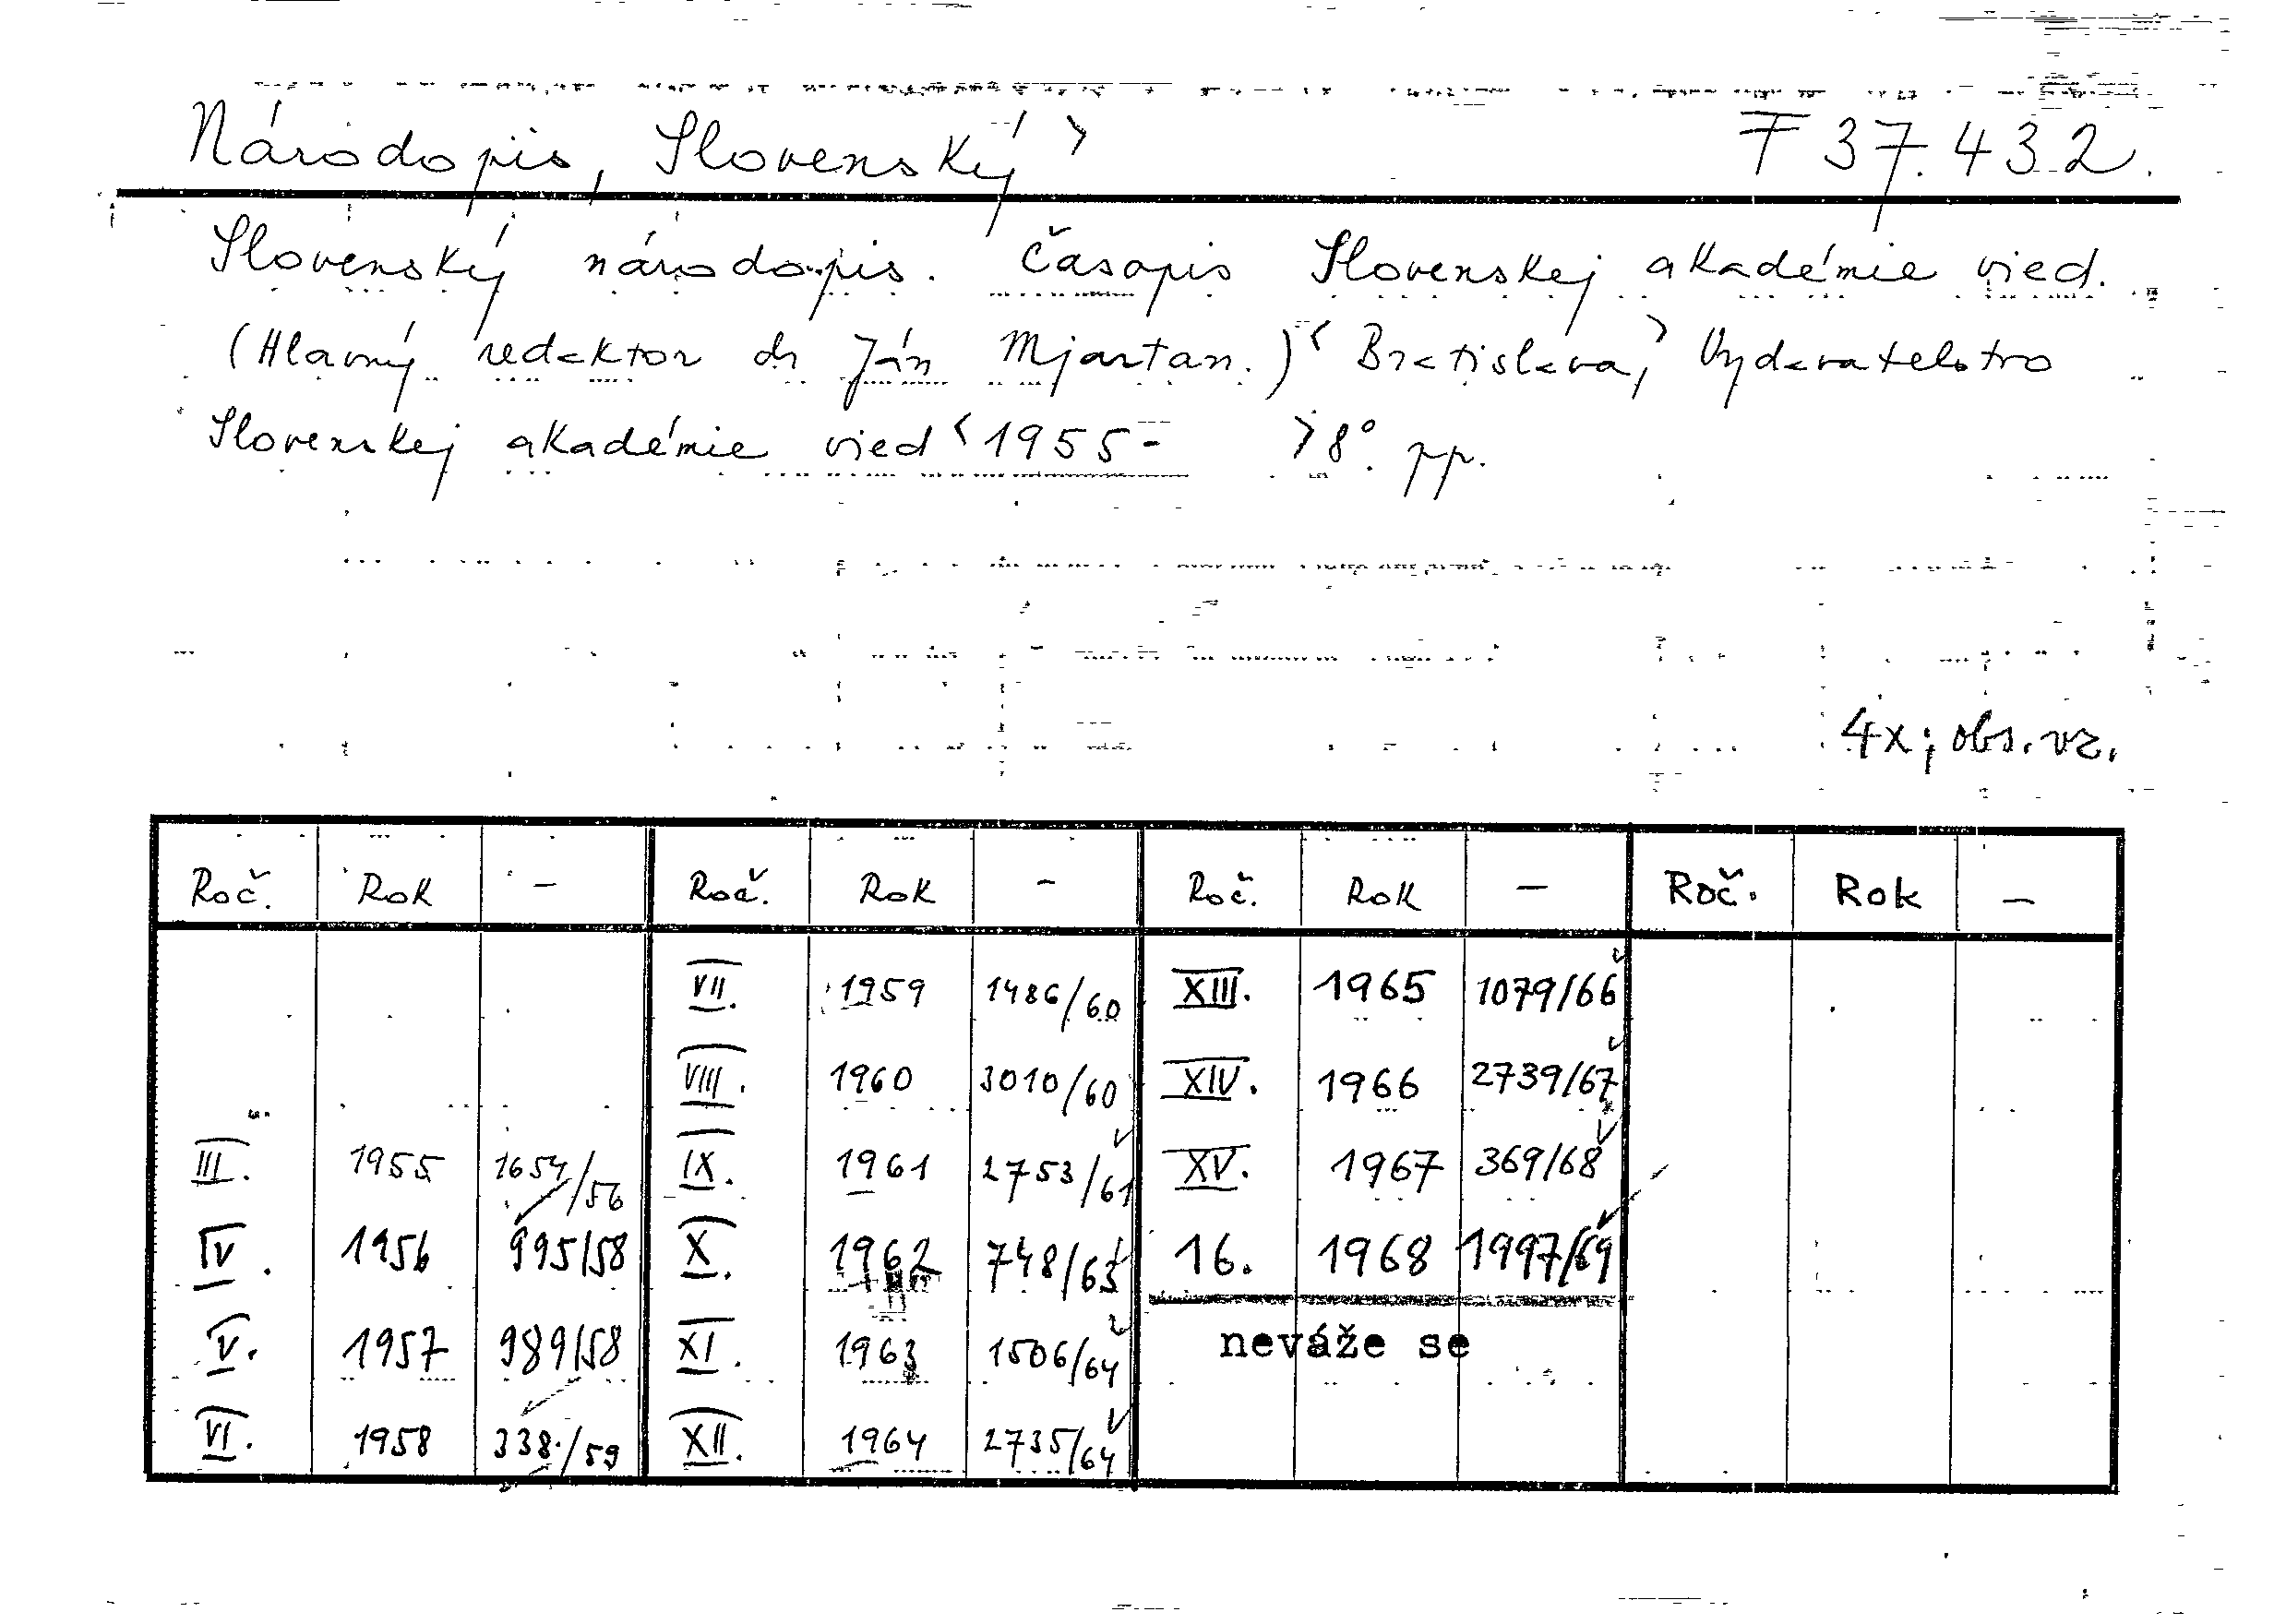 Národopis, Slovenský> F 37.432.
Slovenský národopis. Časopis Slovenskej akadémie vied.
(Hlavný redaktor dr Ján Mjartan.)< Bratislava,> Vydavatelstvo
Slovenskej akadémie vied <1955- >8°. pp.
4x; obs. vz.
Roč. Rok - Roč. Rok - Roč. Rok - Roč. Rok -
VII. 1959 1486/60 XIII. 1965 1079/66
VIII. 1960 3010/60 XIV. 1966 2739/67
III. 1955 1654/56 IX. 1961 2753/61 XV. 1967 369/68
IV. 1956 995/58 X. 1962 748/63 16. 1968 1997/69
V. 1957 989/58 XI. 1963 1506/64 neváže se
VI. 1958 338/59 XII. 1964 2735/64